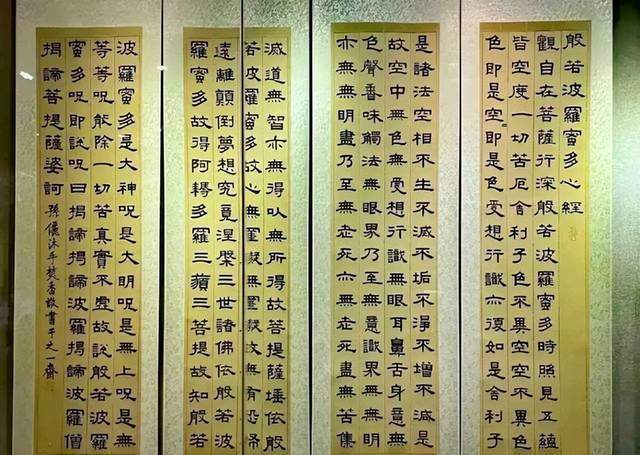 般若波羅蜜多心經
觀自在菩薩行深般若波羅蜜多時照見五蘊
皆空度一切苦厄舍利子色不異空空不異色
色即是空即是色受想行識亦復如是舍利子
是諸法空相不生不滅不垢不淨不增不減是
故空中無色無受想行識無眼耳鼻舌身意無
色聲香味觸法無眼界乃至無意識界無無明
亦無無明盡乃至無老死亦無老死盡無苦集
滅道無智亦無得以無所得故菩提薩埵依般
若波羅蜜多故心無罣礙無罣礙故無有恐怖
遠離顛倒夢想究竟涅槃三世諸佛依般若波
羅蜜多故得阿耨多羅三藐三菩提故知般若
波羅蜜多是大神呪是大明呪是無上呪是無
等等呪能除一切苦真實不虛故說般若波羅
蜜多呪即說呪曰揭諦揭諦波羅揭諦波羅僧
揭諦菩提薩婆訶 孫儷沐手焚香敬書于之一齋